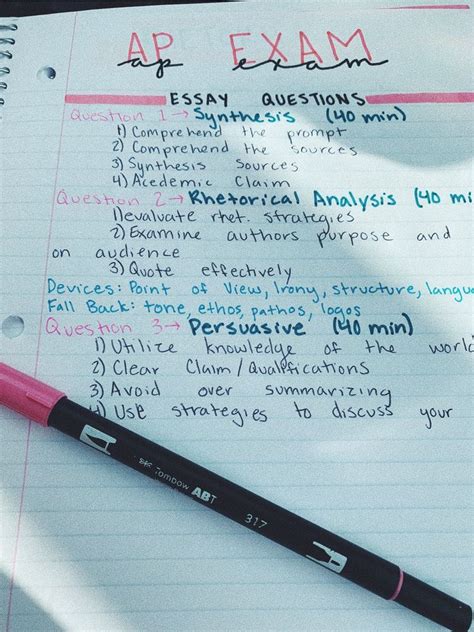 AP EXAM
ap exam
ESSAY QUESTIONS
Question 1 → Synthesis (40 min)
1) Comprehend the prompt
2) Comprehend the sources
3) Synthesis Sources
4) Acedemic Claim
Question 2 → Rhetorical Analysis (40 mi
1) evaluate rhet. strategies
2) Examine authors purpose and
on audience
3) Quote effectively
Devices: Point of View, Irony, structure, langua
Fall Back: tone, ethos, pathos, logos
Question 3 → Persuasive (40 min)
1) Utilize knowledge of the world
2) Clear Claim/Qualifications
3) Avoid over summarizing
4) Use strategies to discuss your
Tombow ABT
317